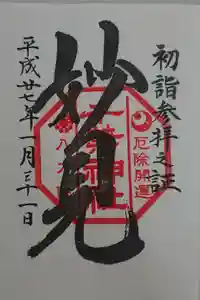 初詣参拝之証
厄除開運
妙見
神社
八方
平成廿七年一月三十一日